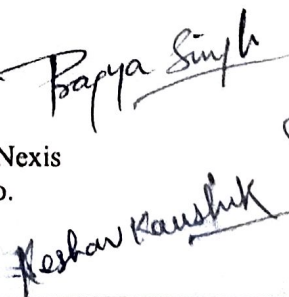 Pragya Singh
Nexis
o.
Keshav Kaushik